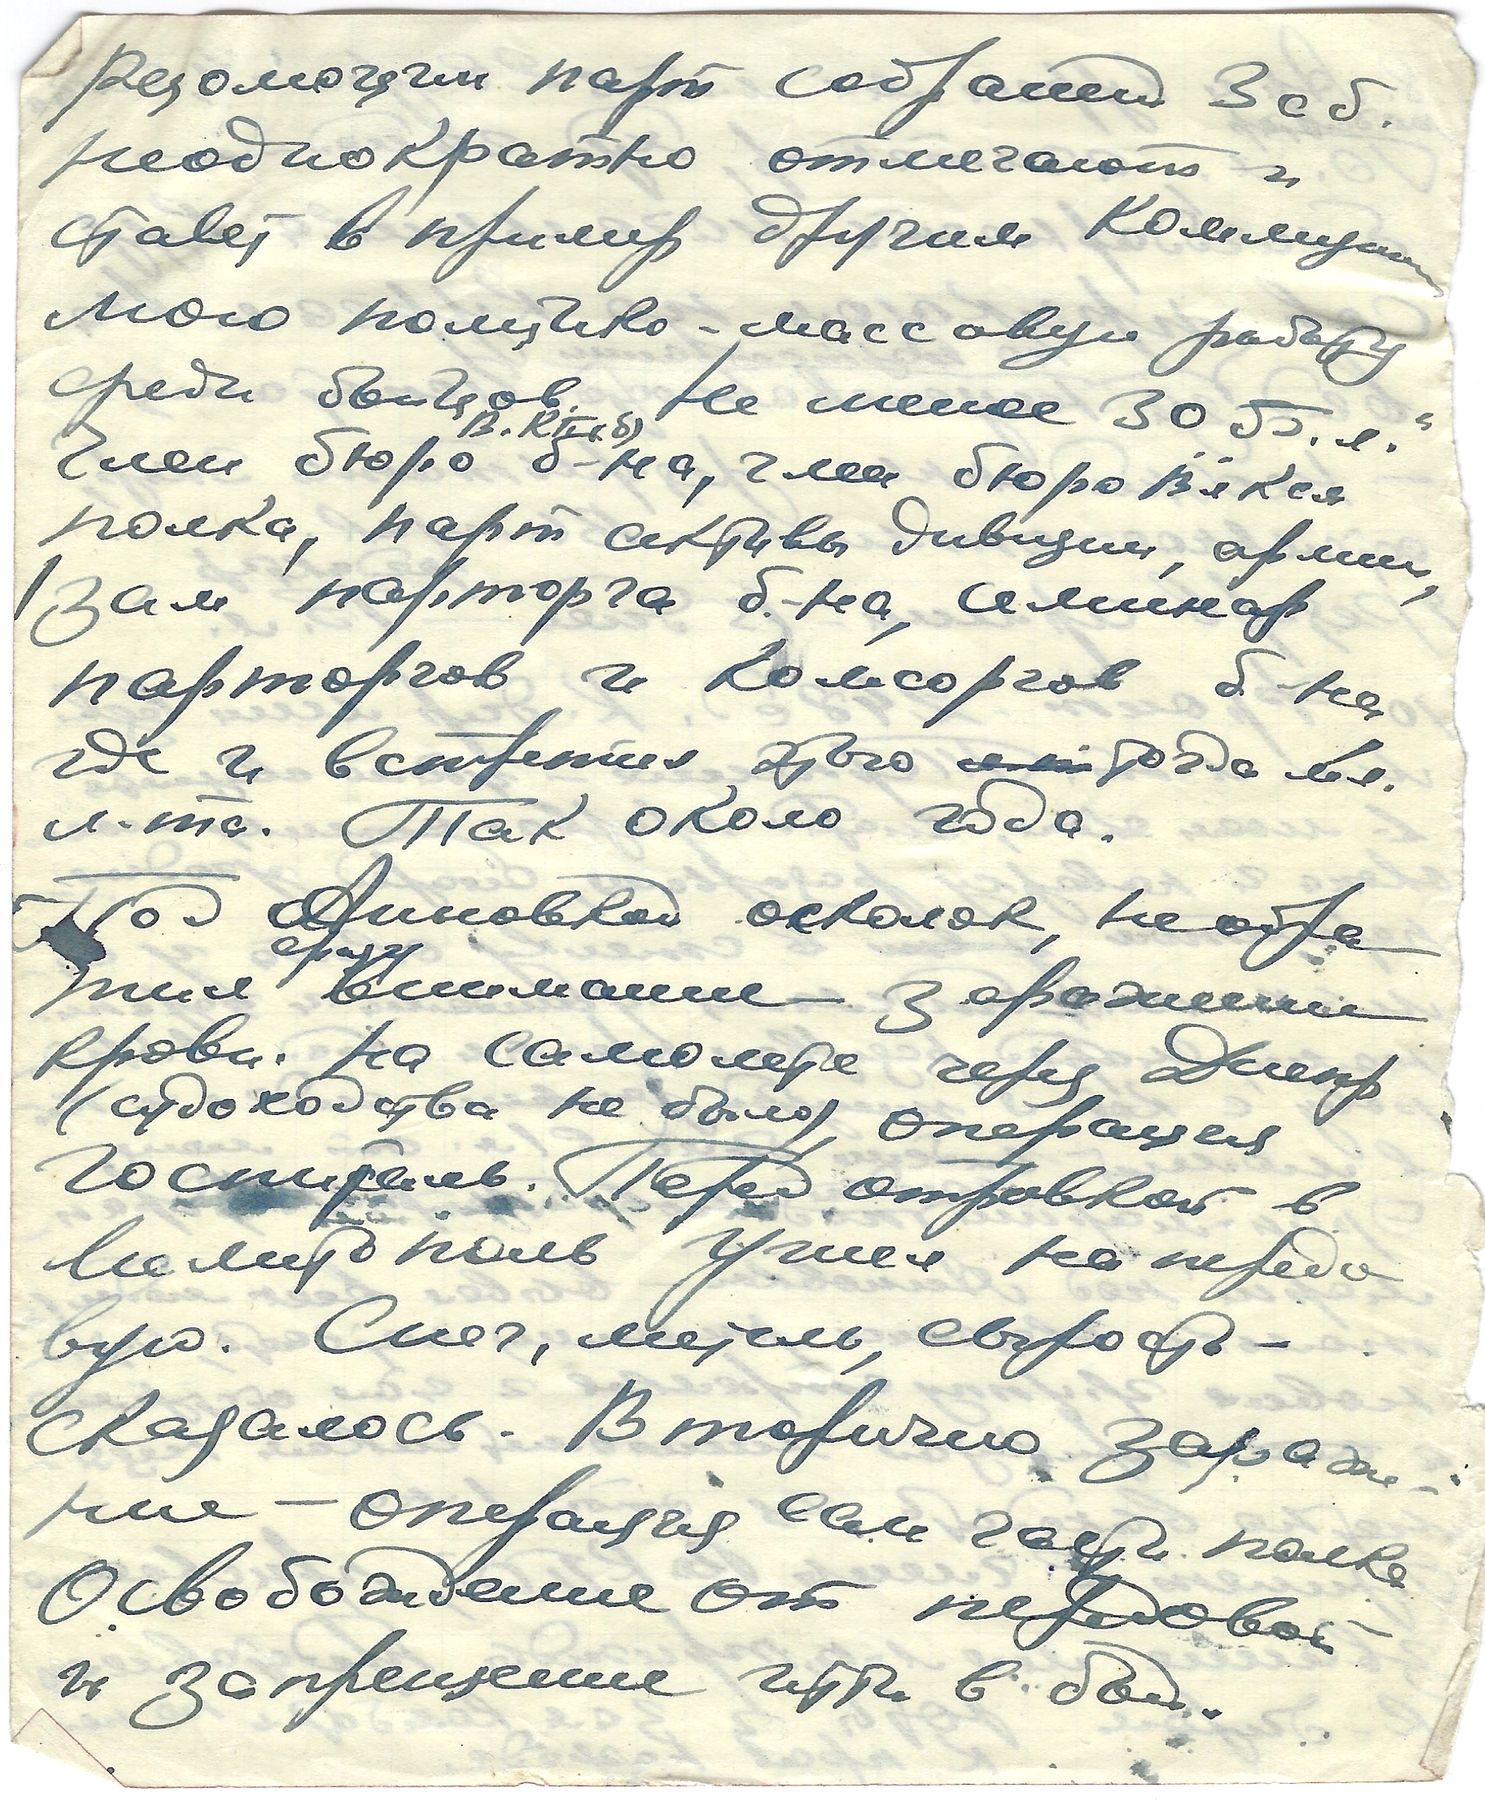 Резолюции парт собраний 3 сб.
неоднократно отмечают и
ставят в пример другим коммун
мою политико-массовую работу
среди бойцов. Не менее 30 б.л."
В.КП(б)
член бюро б-на, член бюро ВЛКСМ
полка, парт активы дивизии, армии,
зам парторга б-на, семинар
парторгов и комсоргов б-на,
где и встретил этого тогда мл.
л-та. Так около года.
Под осколок, не обра
сразу
тил внимание – заражение
крови. На самолете через Днепр
(судоходства не было), операция
госпиталь. Перед отправкой в
Мелитополь ушел на передо
вую. Снег, метель, сырость –
сказалось. Вторично зараже-
ние – операция сан части полка
Освобождение от передовой
и запрещение идти в бой.